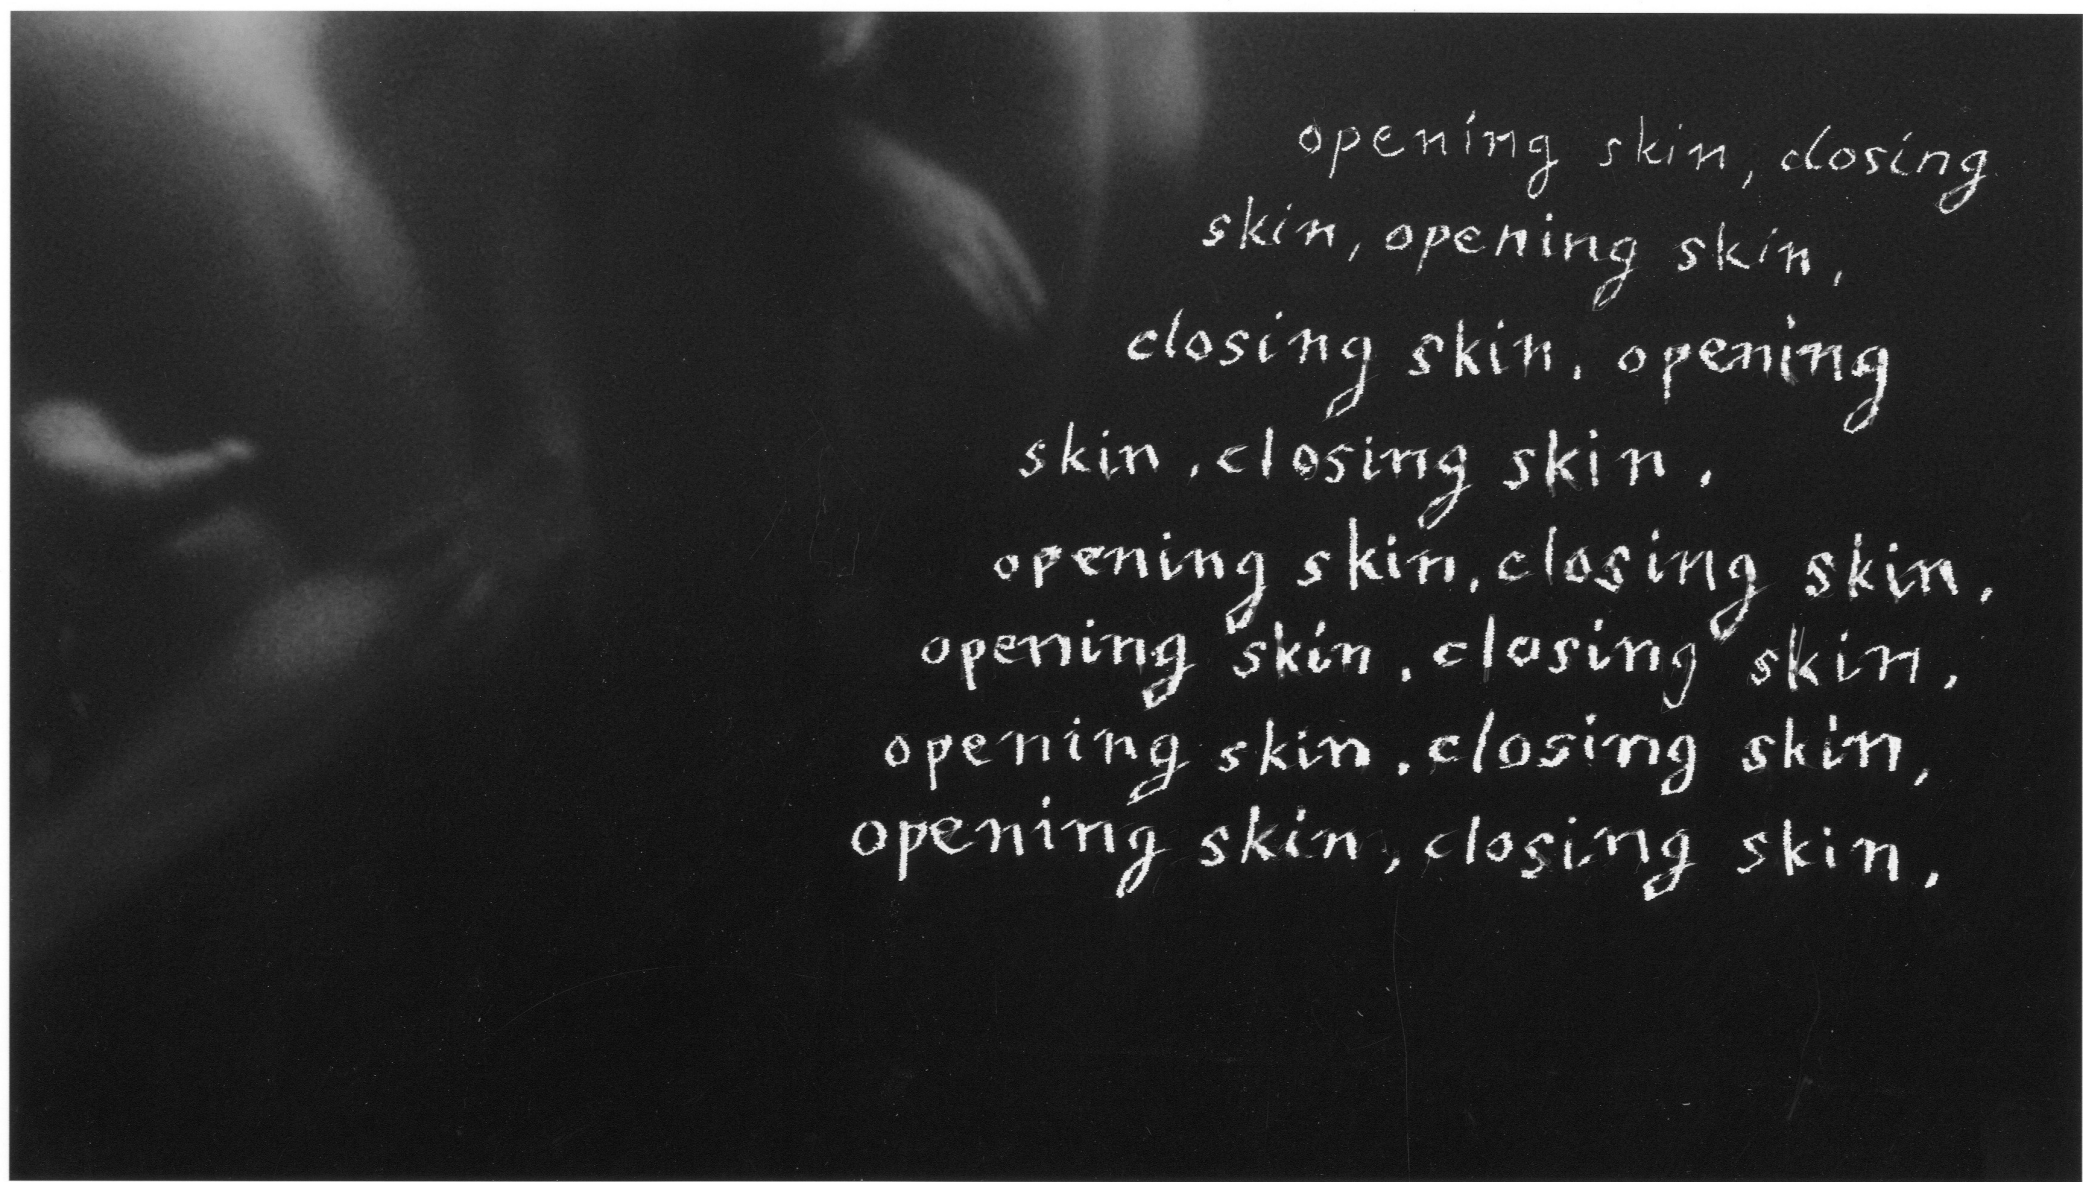 opening skin, closing
skin, opening skin,
closing skin, opening
skin, closing skin,
opening skin, closing skin,
opening skin, closing skin,
opening skin, closing skin,
opening skin, closing skin,